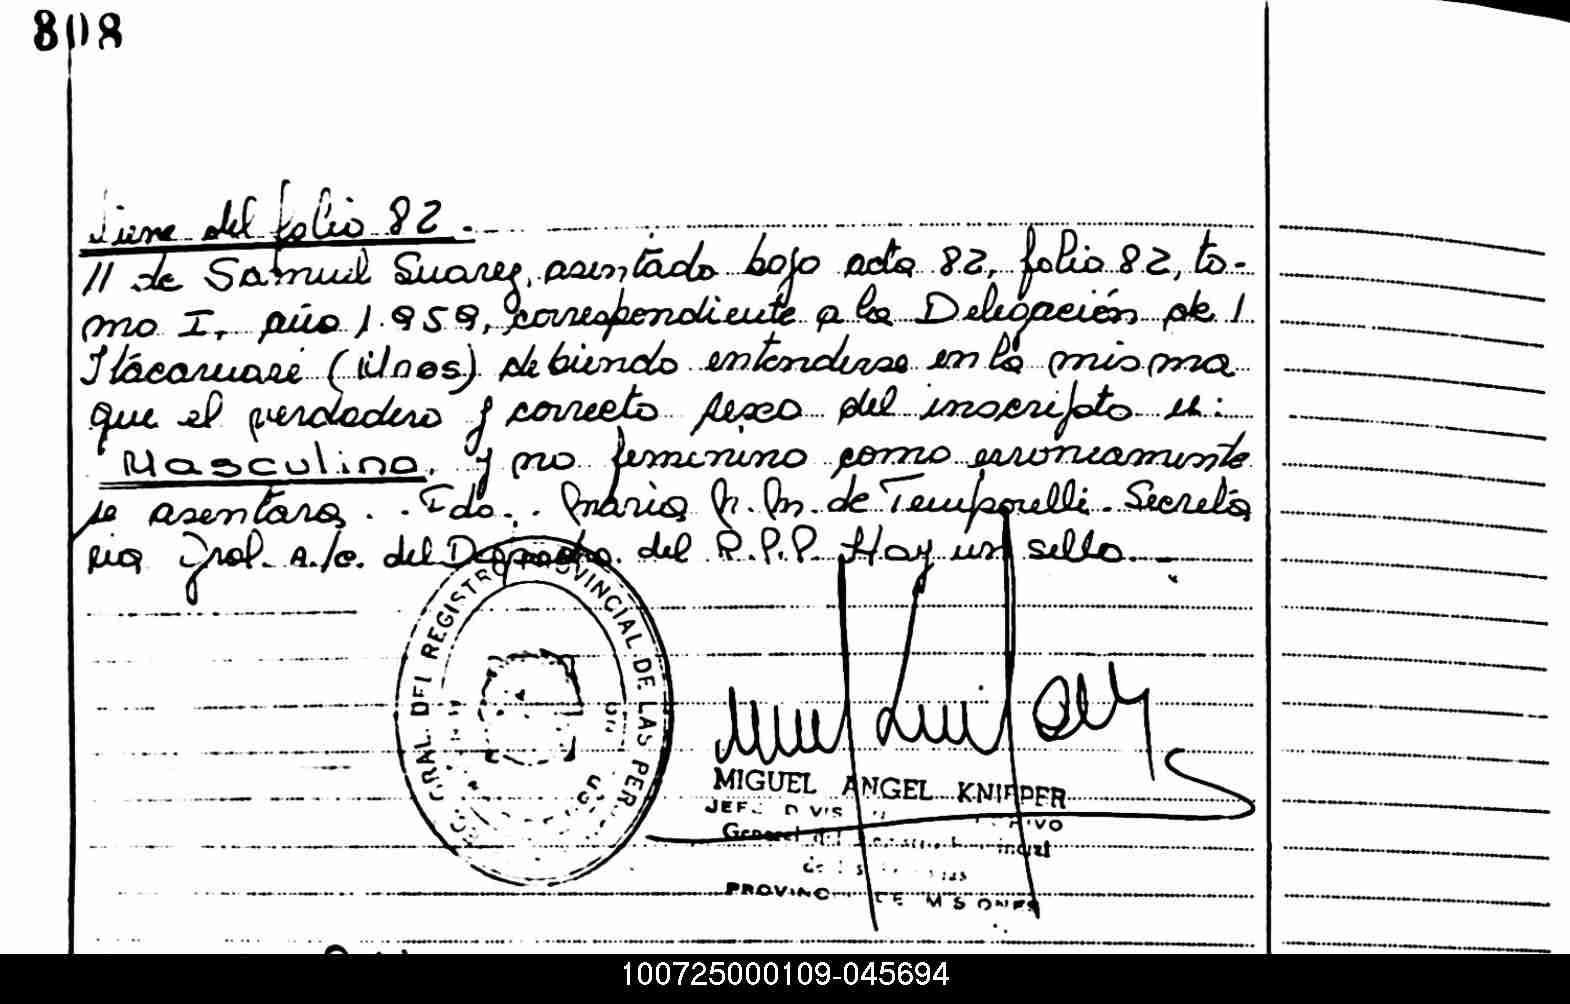 808
Viene del folio 82.
// de Samuel Suarez, asentado bajo acta 82, folio 82, to-
mo I, año 1.959, correspondiente a la Delegación de /
Itacaruaré (Mnes) debiendo entenderse en la misma
que el verdadero y correcto sexo del inscripto es:
Masculino, y no femenino como erroneamente
se asentara. . Fdo. . Maria M. M. de Temporelli. Secreta
ria Gral. a./c. del Despacho. del R.P.P. Hay un sello. -
GRAL. DEL REGISTRO PROVINCIAL DE LAS PER
MIGUEL ANGEL KNIPPER
General del
PROVINC DE MISIONES
100725000109-045694